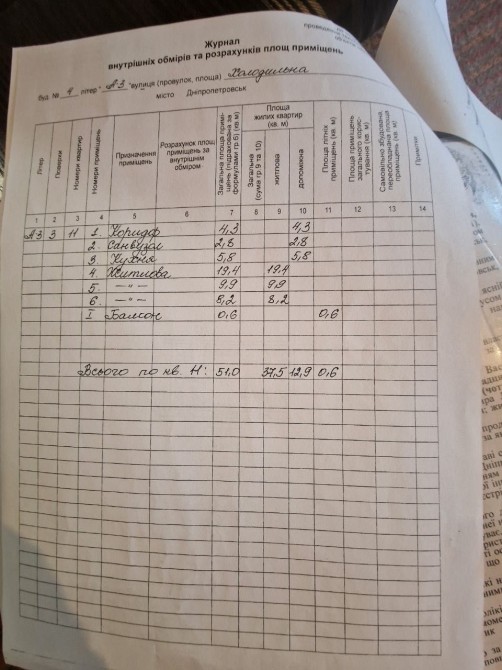 Журнал
внутрішніх обмірів та розрахунків площ приміщень
буд. № 4 літер А3 вулиця (провулок, площа) Холодильна
місто Дніпропетровськ
Літер
Поверхи
Номери квартир
Номери приміщень
Призначення приміщень
Розрахунок площ приміщень за внутрішнім обміром
Загальна площа приміщень (підрахована за формулами гр.6) (кв. м)
Площа жилих квартир (кв. м)
Загальна (сума гр.9 та 10)
житлова
допоміжна
Площа літніх приміщень (кв. м)
Площа приміщень загального користування (кв. м)
Самовільно збудована, переобладнана площа приміщень (кв. м)
Примітки
1 2 3 4 5 6 7 8 9 10 11 12 13 14
А3 3 11 1. Коридор 4,3 4,3
2. Санвузол 2,8 2,8
3. Кухня 5,8 5,8
4. Житлова 19,4 19,4
5. —"— 9,9 9,9
6. —"— 8,2 8,2
I Балкон 0,6 0,6
Всього по кв. 11: 51,0 37,5 12,9 0,6